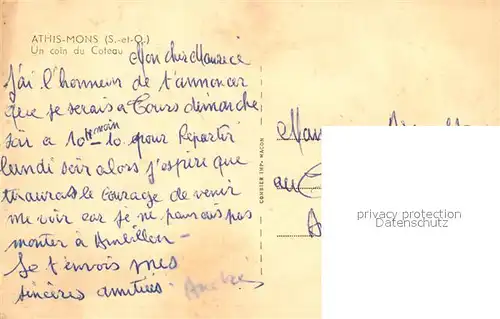 ATHIS-MONS (S.-et-O.)
Un coin du Coteau
Mon cher Maurice
J'ai l'honneur de t'annoncer
que je serais a Tours dimanche
soir a 10h moin 10. pour Repartir
lundi soir alors j'espère que
tu auras le courage de venir
me voir car je ne pourrais pas
monter à Ambillou -
Je t'envois mes
sincères amitiés. André
COMBIER IMP. MACON
au
privacy protection
Datenschutz